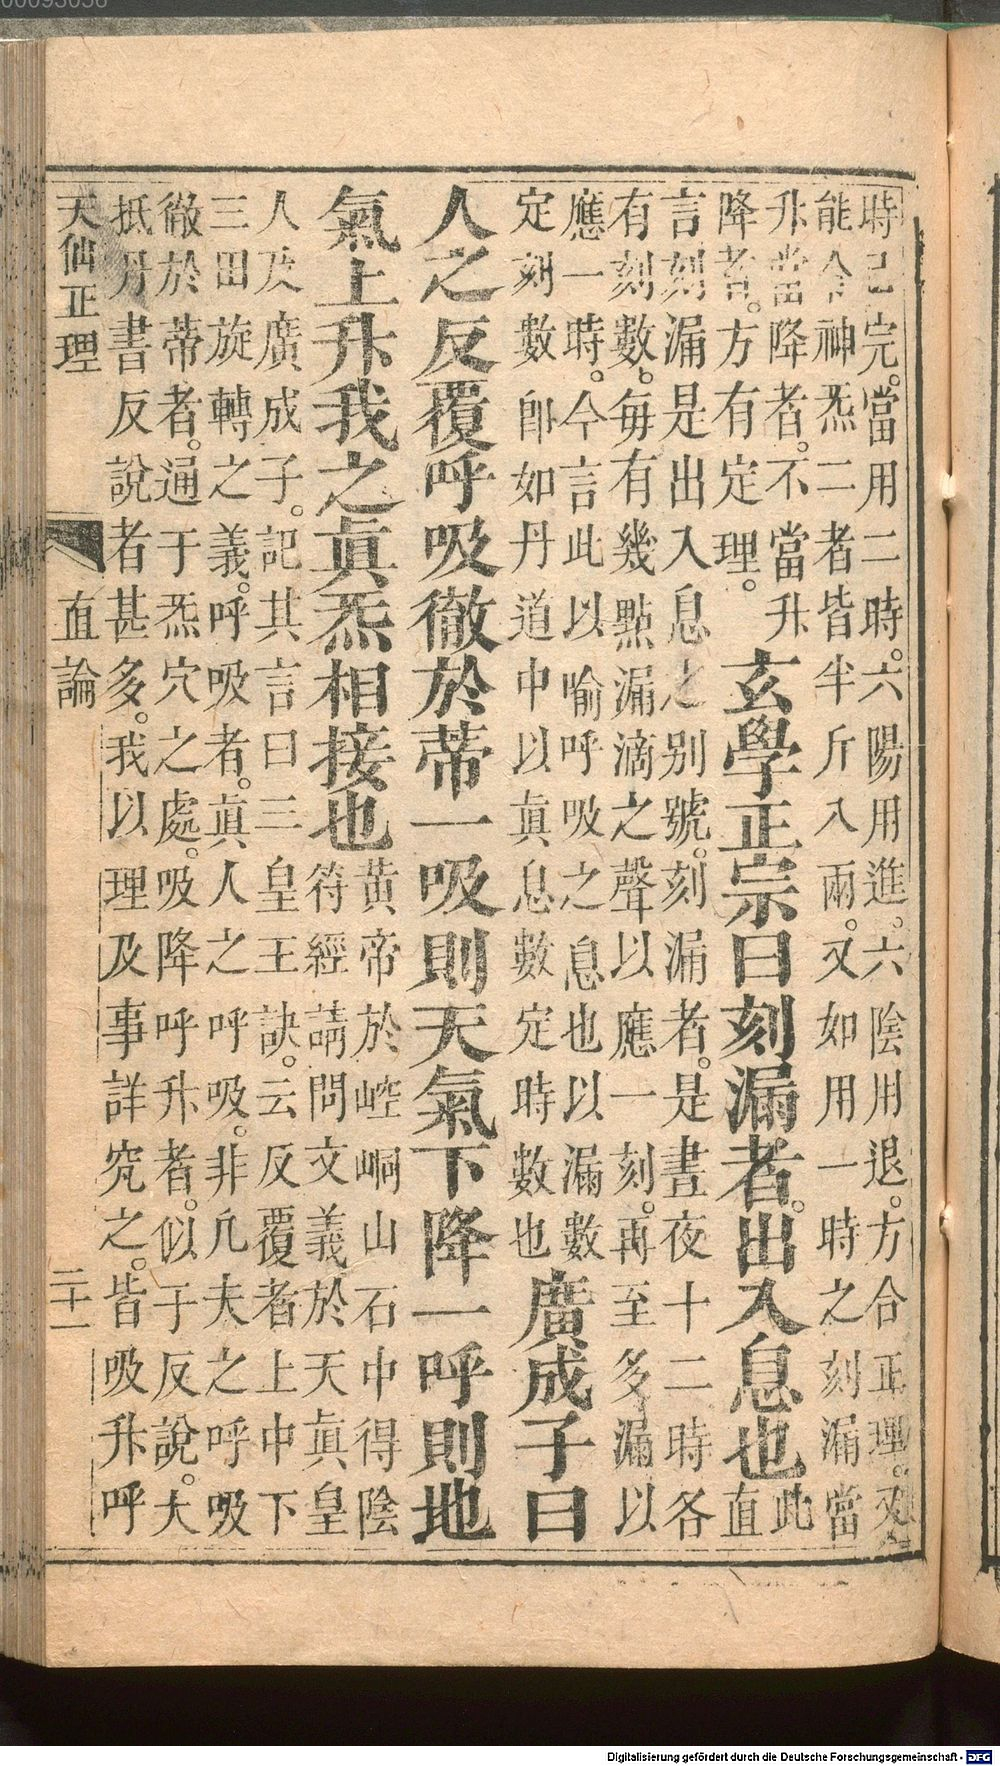 時已完。當用二時。六陽用進。六陰用退。方合正理。又
能令神炁二者皆半斤八兩。又如用一時之刻漏當
升當降者。不當升
降者。方有定理。
玄學正宗曰刻漏者。出入息也
此
直
言刻漏是出入息之别號。刻漏者。是晝夜十二時各
有刻數。每有幾點漏滴之聲以應一刻。再至多漏以
應一時。今言此以喻呼吸之息也以漏數
定刻數卽如丹道中以眞息數定時數也
廣成子曰
人之反覆呼吸徹於蒂一吸則天氣下降一呼則地
氣上升我之眞炁相接也
黃帝於崆峒山石中得陰
符經請問文義於天眞皇
人及廣成子。記其言曰三皇王訣。云反覆者上中下
三田旋轉之義。呼吸者。眞人之呼吸。非凢夫之呼吸
徹於蒂者。通于炁穴之處。吸降呼升者。似于反說。大
抵丹書反說者甚多。我以理及事詳究之。皆吸升呼
天仙正理 直論 二十一
Digitalisierung gefördert durch die Deutsche Forschungsgemeinschaft - DFG